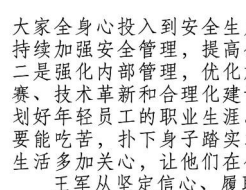 大家全身心投入到安全生
持续加强安全管理，提高
二是强化内部管理，优化
赛、技术革新和合理化建
划好年轻员工的职业生涯
要能吃苦，扑下身子踏实
生活多加关心，让他们在
王军从坚定信心、履